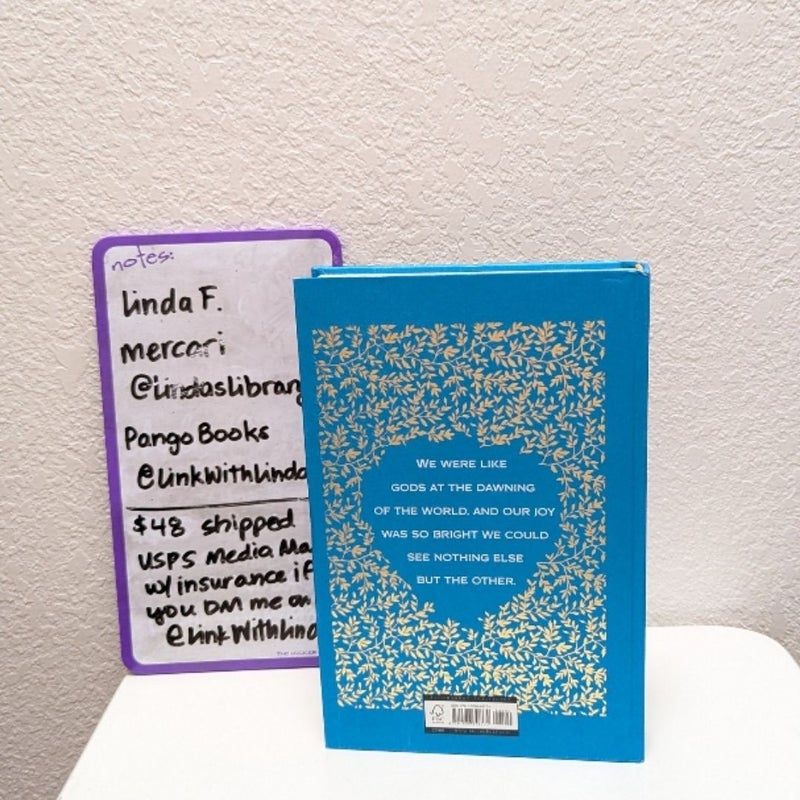 notes:
Linda F.
mercari
@LindasLibrary
Pango Books
@LinkWithLinda
$48 shipped
USPS Media Ma
w/ insurance if
you DM me on
@LinkWithLind
WE WERE LIKE
GODS AT THE DAWNING
OF THE WORLD, AND OUR JOY
WAS SO BRIGHT WE COULD
SEE NOTHING ELSE
BUT THE OTHER.
FSC